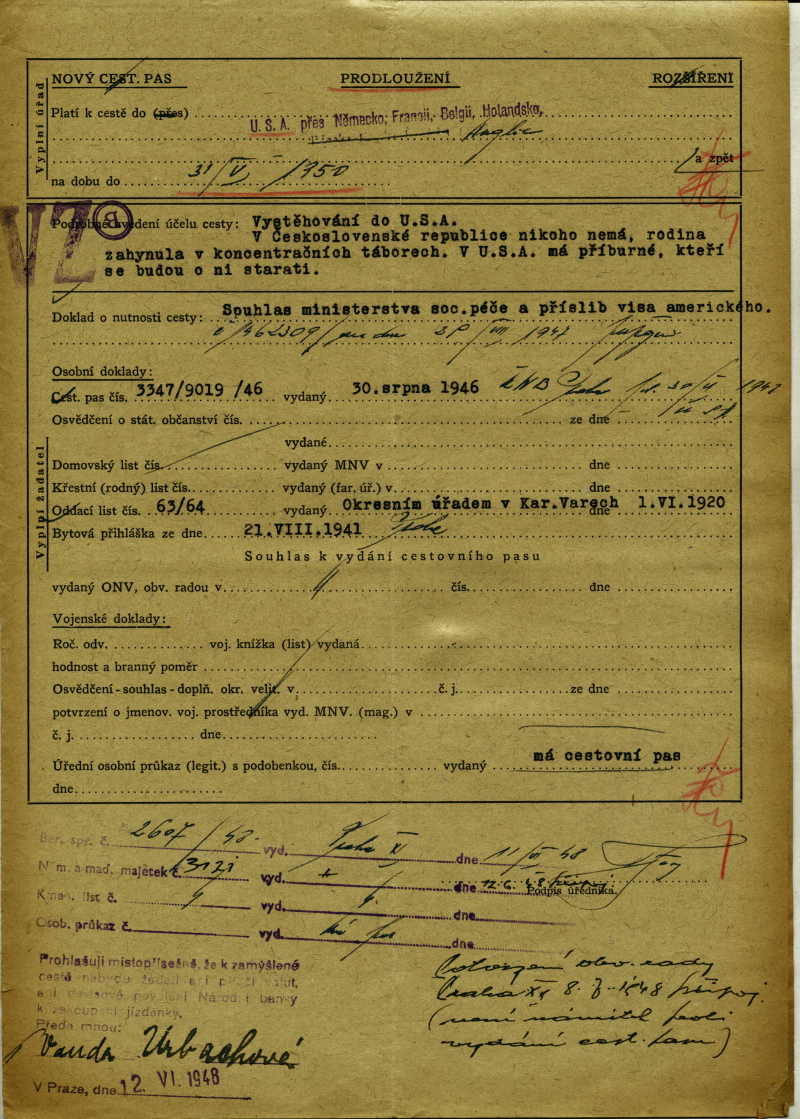 NOVÝ CEST. PAS PRODLOUŽENÍ ROZŠÍŘENÍ
Vyplní úřad
Platí k cestě do (přes)
U.S.A. přes Německo, Francii, Belgii, Holandsko,
Anglie
a zpět
na dobu do 31/V. 1950
VZ B
Podrobné uvedení účelu cesty: Vystěhování do U.S.A.
V Československé republice nikoho nemá, rodina
zahynula v koncentračních táborech. V U.S.A. má příburné, kteří
se budou o ni starati.
Doklad o nutnosti cesty: Souhlas ministerstva soc.péče a příslib visa amerického.
Osobní doklady:
Cest. pas čís. 3347/9019 /46 vydaný 30.srpna 1946
Osvědčení o stát. občanství čís. ze dne
vydané
Vyplní žadatel
Domovský list čís. vydaný MNV v dne
Křestní (rodný) list čís. vydaný (far. úř.) v dne
Oddací list čís. 63/64 vydaný Okresním úřadem v Kar.Varech dne 1.VI.1920
Bytová přihláška ze dne 21.VIII.1941
Souhlas k vydání cestovního pasu
vydaný ONV, obv. radou v čís. dne
Vojenské doklady:
Roč. odv. voj. knížka (list) vydaná
hodnost a branný poměr
Osvědčení-souhlas-doplň. okr. velit. v č. j. ze dne
potvrzení o jmenov. voj. prostředníka vyd. MNV. (mag.) v
č. j. dne
má cestovní pas
Úřední osobní průkaz (legit.) s podobenkou, čís. vydaný
dne
Ber. spr. č. 2607/48 vyd. Praha XI dne 11/VI 48
Něm. a maď. majetek č. vyd. dne 12.6.48
Podpis úředníka.
Kmen. list č. vyd. dne
Osob. průkaz č. vyd. dne
Prohlašuji místopřísežně, že k zamýšlené
cestě
Národní banky
jízdenky.
Přede mnou:
Potvrzení obv. rady
Praha XI 8.6.1948
(není námitek proti
vydání cest. pasu)
Vanda Urbachová
V Praze, dne 12. VI. 1948